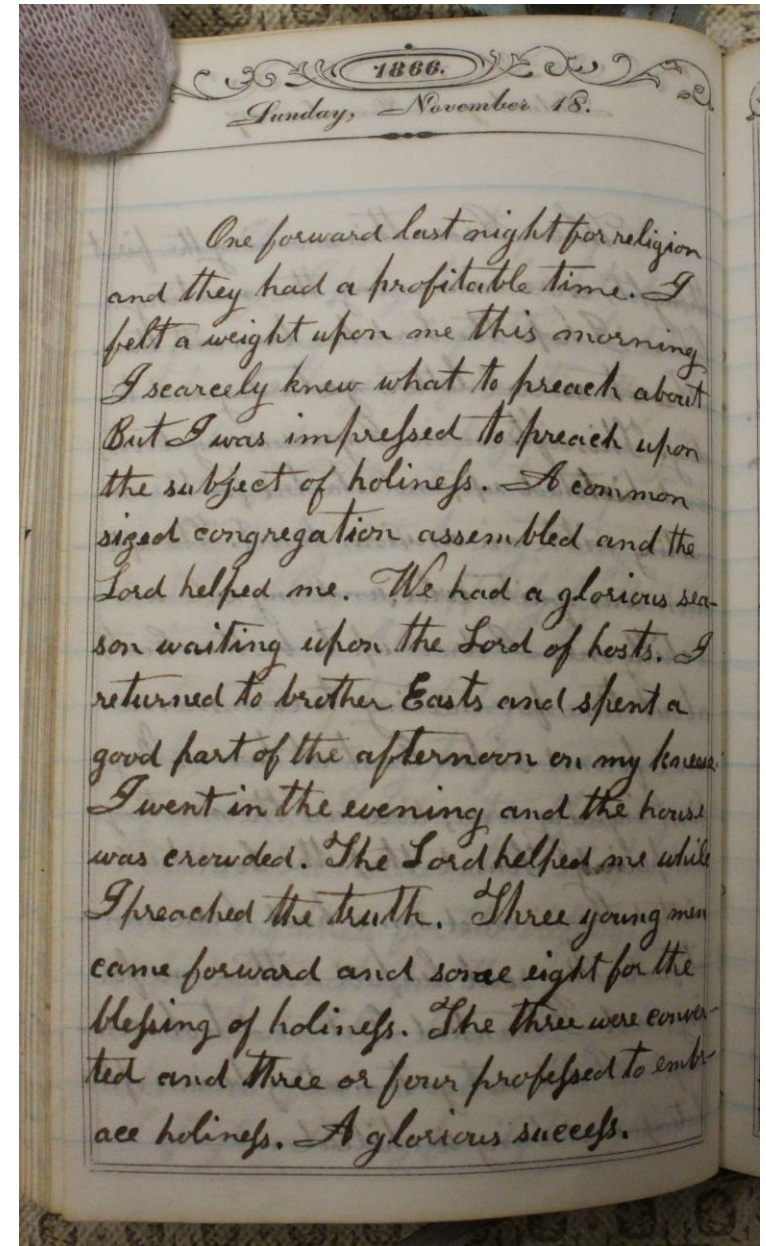 1866.
Sunday, November 18.
One forward last night for religion
and they had a profitable time. I
felt a weight upon me this morning
I scarcely knew what to preach about
But I was impreſsed to preach upon
the subject of holineſs. A common
sized congregation assembled and the
Lord helped me. We had a glorious sea-
son waiting upon the Lord of hosts. I
returned to brother Easts and spent a
good part of the afternoon on my knees
I went in the evening and the house
was crowded. The Lord helped me while
I preached the truth. Three young men
came forward and some eight for the
bleſsing of holineſs. The three were conver-
ted and three or four profeſsed to embr-
ace holineſs. A glorious succeſs.